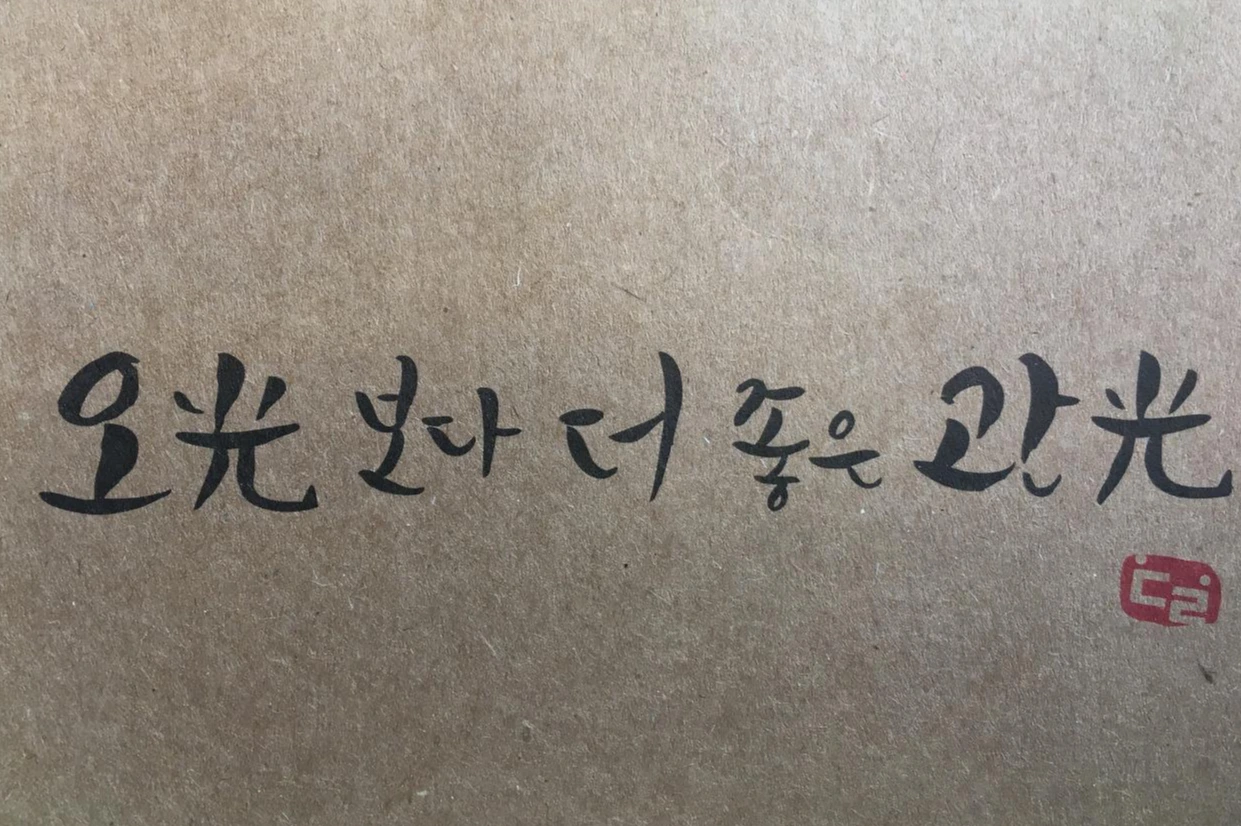 오光 보다 더 좋은 관光